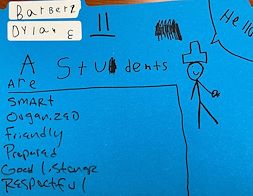 Barber2
Dylan E
11
Hello
A Students
Are
SMART
OrganizED
Friendly
Prepared
Good listener
RESPECTFUL